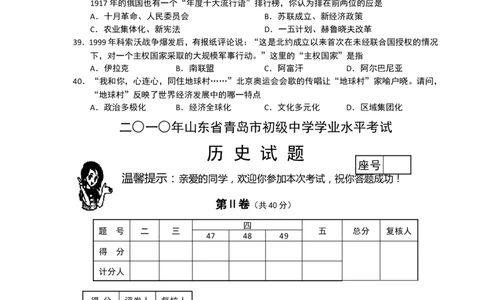 1917年的俄国也有一个“年度十大流行语”排行榜，你认为排在前两位的应是
A．十月革命、人民委员会 B．苏联成立、新经济政策
C．农业集体化、新宪法 D．一五计划、赫鲁晓夫改革
39．1999年科索沃战争爆发后，有报纸评论说：“这是北约成立以来首次在未经联合国授权的情况
下，对一个主权国家采取的大规模军事行动。”这里的“主权国家”是指
A．伊拉克 B．南联盟 C．阿富汗 D．阿尔巴尼亚
40．“我和你，心连心，同住地球村……”北京奥运会会歌的传唱让“地球村”家喻户晓。请问，
“地球村”反映了世界经济发展中的哪一特点
A．政治多极化 B．经济全球化 C．文化多元化 D．区域集团化
二〇一〇年山东省青岛市初级中学学业水平考试
历 史 试 题
座号
温馨提示：亲爱的同学，欢迎你参加本次考试，祝你答题成功！
第Ⅱ卷（共40分）
题 号 二 三 四 五 总分 复核人
47 48 49
得 分
计分人
得 分 评卷人 复核人